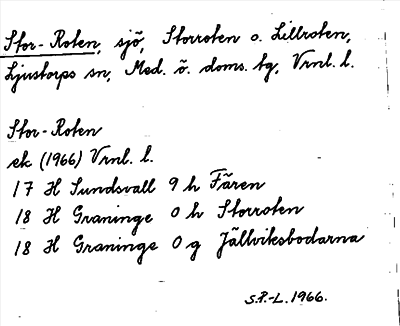 Stor-Roten, sjö, Storroten o. Lillroten,
Ljustorps sn, Med. ö. doms. tg, Vrnl. l.
Stor-Roten
ek (1966) Vrnl. l.
17 H Sundsvall 9 h Fären
18 H Graninge 0 h Storroten
18 H Graninge 0 g Jällviksbodarna
S.P.-L. 1966.